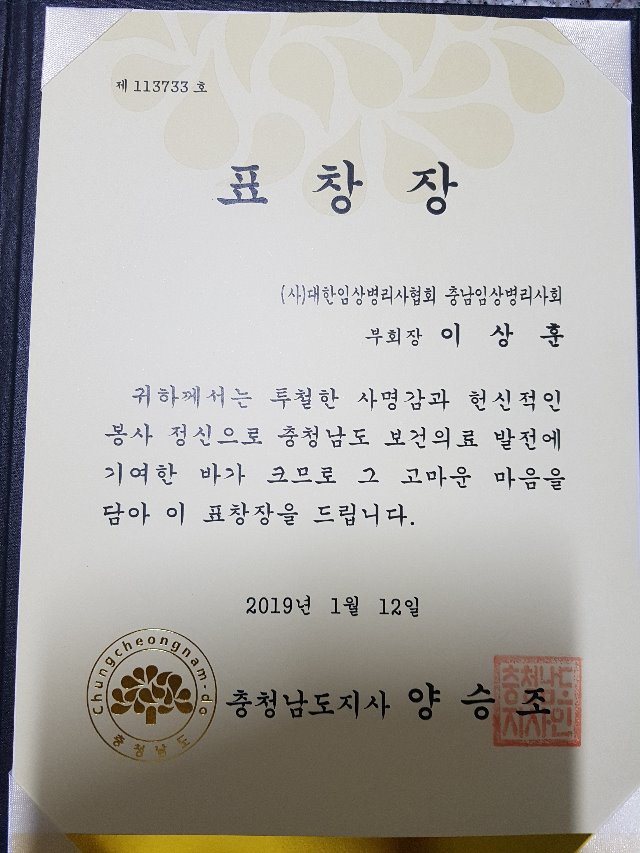 제 113733 호
표 창 장
(사)대한임상병리사협회 충남임상병리사회
부회장 이 상 훈
귀하께서는 투철한 사명감과 헌신적인
봉사 정신으로 충청남도 보건의료 발전에
기여한 바가 크므로 그 고마운 마음을
담아 이 표창장을 드립니다.
2019년 1월 12일
chungcheongnam-do
충청남도
충청남도지사 양 승 조
충청남도
지사인